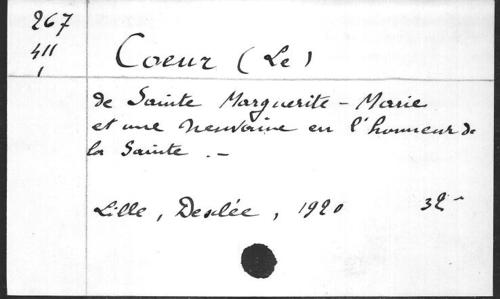 267
411
1
Coeur (Le)
de Sainte Marguerite - Marie
et une neuvaine en l'honneur de
la Sainte. -
Lille, Desclée, 1920 32-